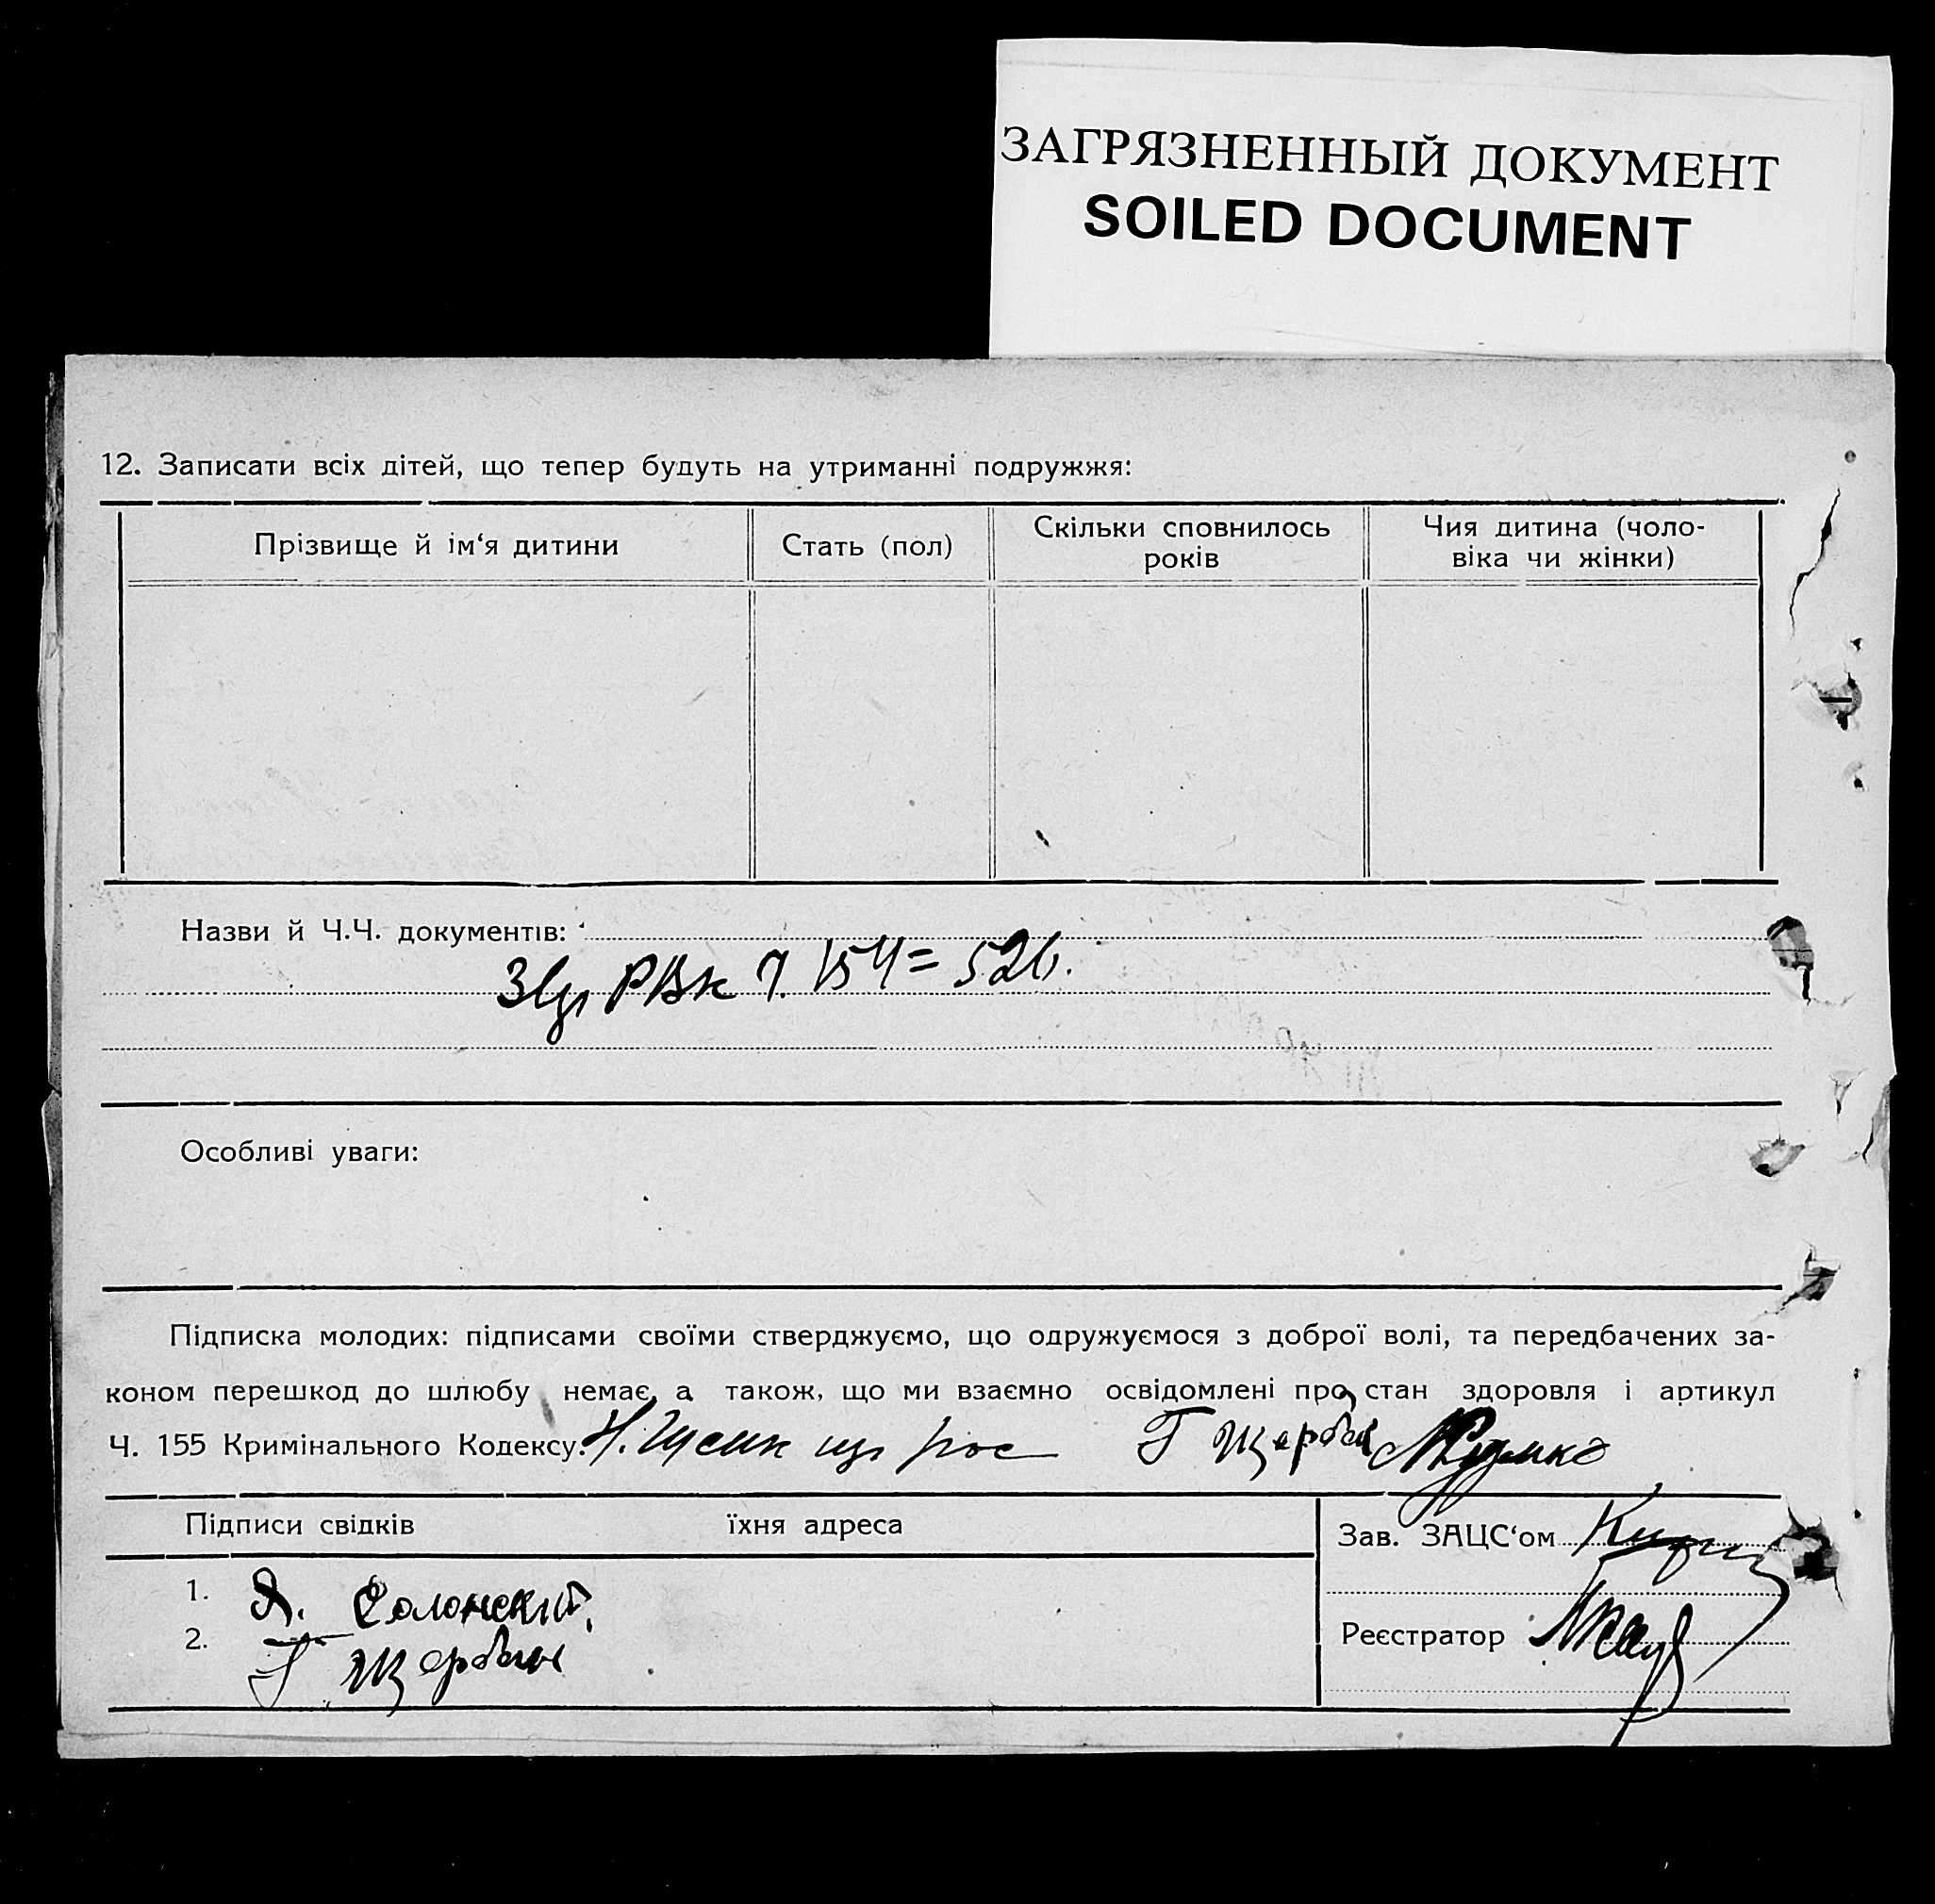 ЗАГРЯЗНЕННЫЙ ДОКУМЕНТ
SOILED DOCUMENT
12. Записати всіх дітей, що тепер будуть на утриманні подружжя:
Прізвище й ім‘я дитини
Стать (пол)
Скільки сповнилось
років
Чия дитина (чоло-
віка чи жінки)
Назви й Ч.Ч. документів:
РВК
Особливі уваги:
Підписка молодих: підписами своїми стверджуємо, що одружуємося з доброї волі, та передбачених за-
коном перешкод до шлюбу немає, а також, що ми взаємно освідомлені про стан здоровля і артикул
Ч. 155 Кримінального Кодексу. Г Щербак
Підписи свідків
їхня адреса
Зав. ЗАЦС‘ом
1. Я. Солонский.
2. Г Щербак
Реєстратор